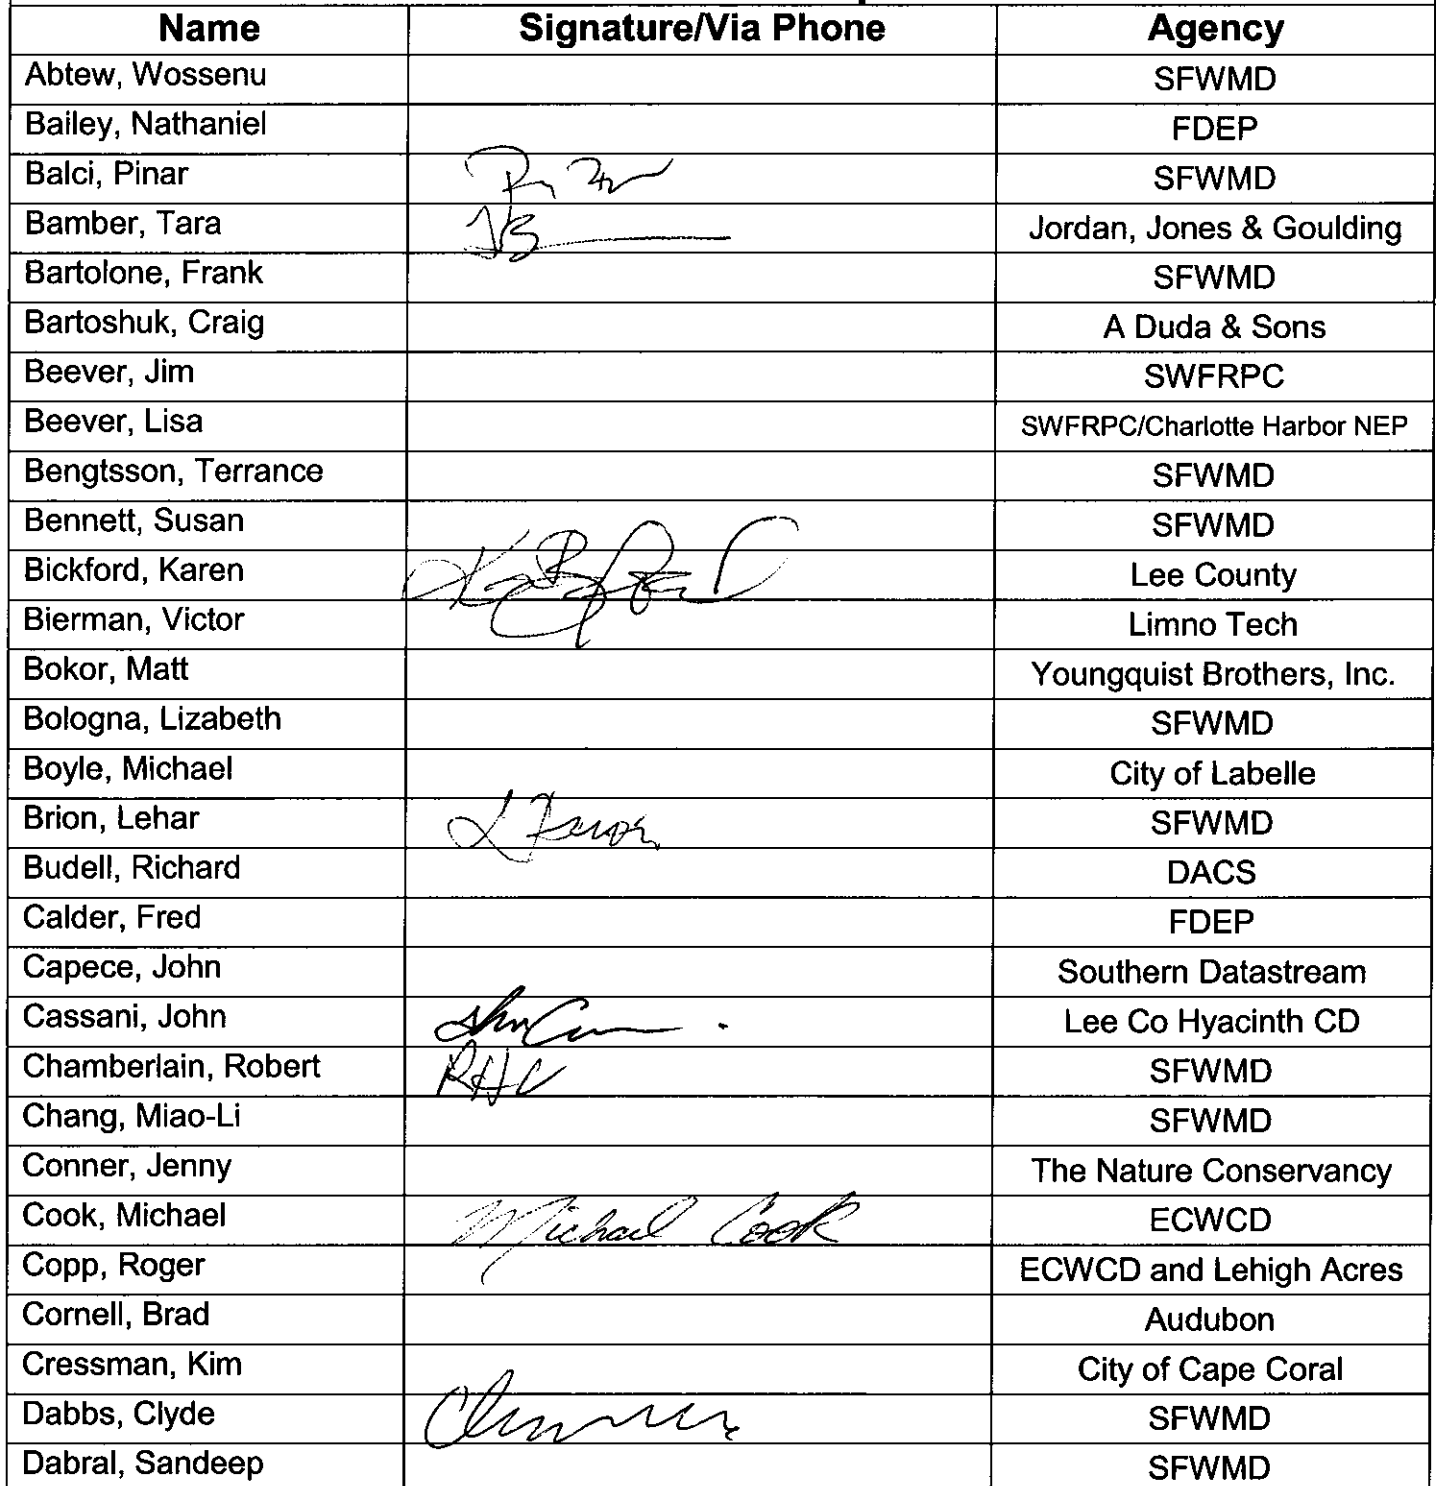 Name Signature/Via Phone Agency
Abtew, Wossenu SFWMD
Bailey, Nathaniel FDEP
Balci, Pinar SFWMD
Bamber, Tara TB Jordan, Jones & Goulding
Bartolone, Frank SFWMD
Bartoshuk, Craig A Duda & Sons
Beever, Jim SWFRPC
Beever, Lisa SWFRPC/Charlotte Harbor NEP
Bengtsson, Terrance SFWMD
Bennett, Susan SFWMD
Bickford, Karen Lee County
Bierman, Victor Limno Tech
Bokor, Matt Youngquist Brothers, Inc.
Bologna, Lizabeth SFWMD
Boyle, Michael City of Labelle
Brion, Lehar SFWMD
Budell, Richard DACS
Calder, Fred FDEP
Capece, John Southern Datastream
Cassani, John Lee Co Hyacinth CD
Chamberlain, Robert RHC SFWMD
Chang, Miao-Li SFWMD
Conner, Jenny The Nature Conservancy
Cook, Michael Michael Cook ECWCD
Copp, Roger ECWCD and Lehigh Acres
Cornell, Brad Audubon
Cressman, Kim City of Cape Coral
Dabbs, Clyde SFWMD
Dabral, Sandeep SFWMD